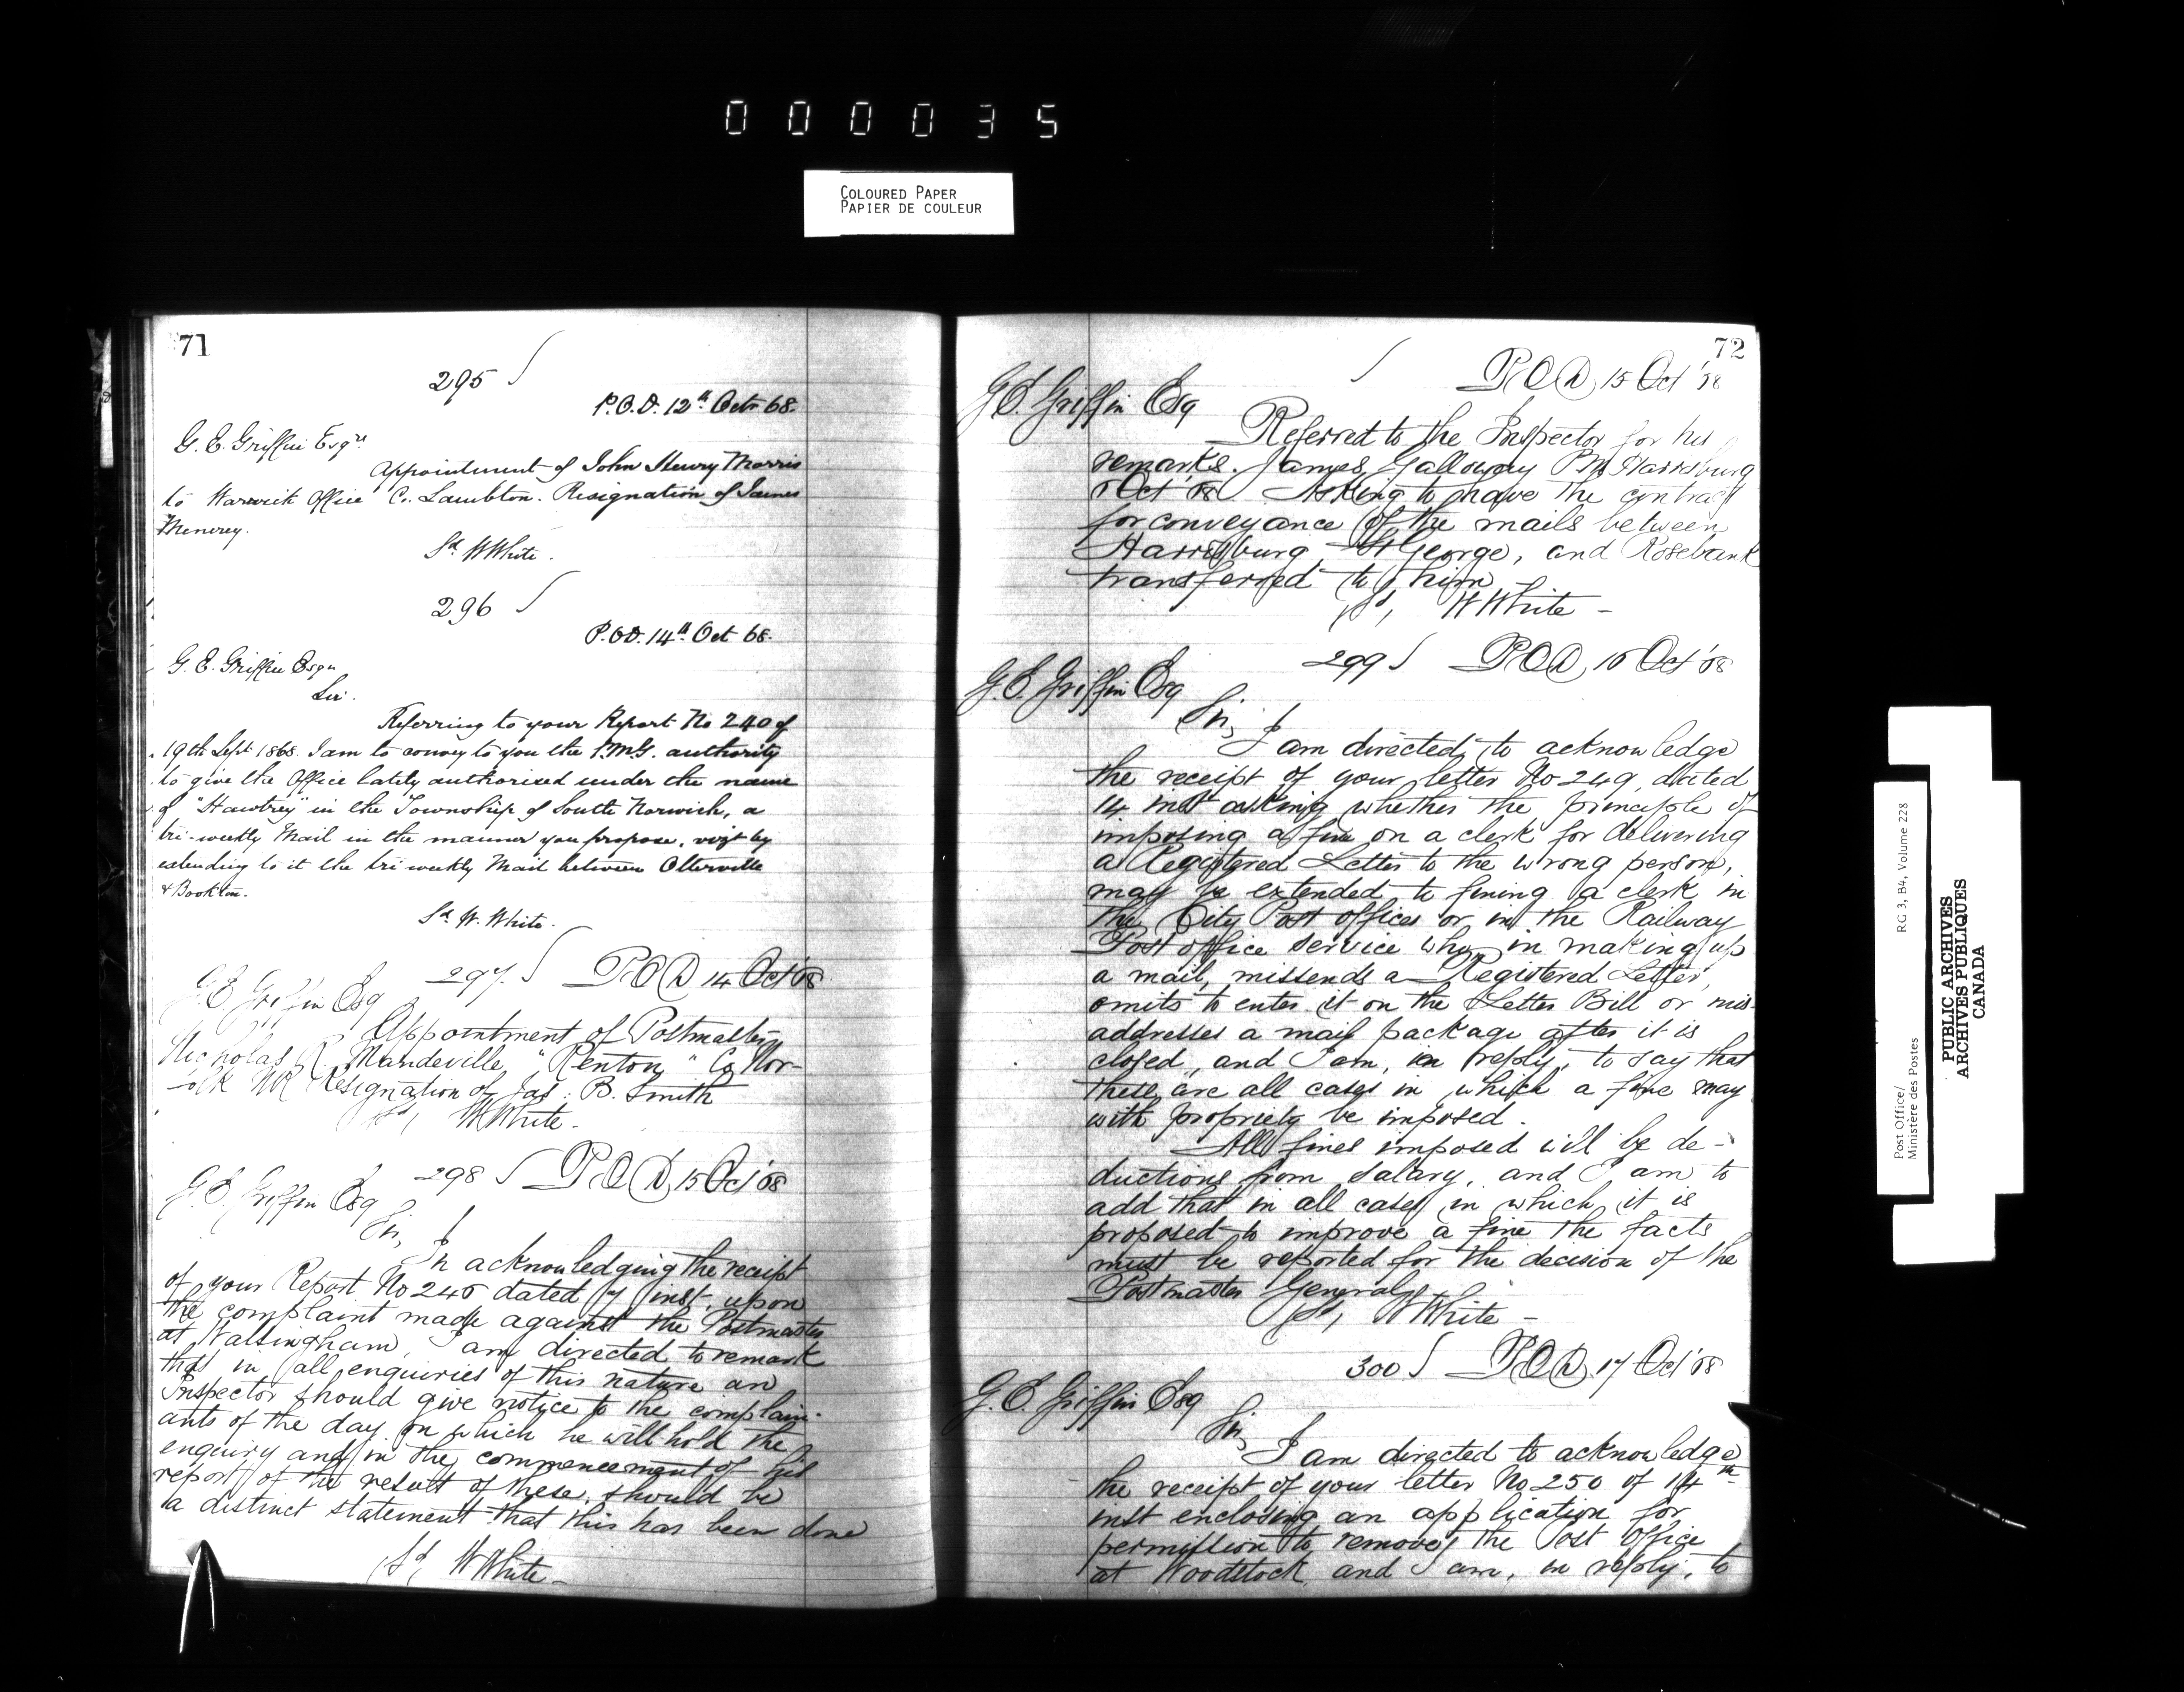 000035
COLOURED PAPER
PAPIER DE COULEUR
71
295
P.O.D. 12th Octr 68.
G. E. Griffin Esqre
Appointment of John Henry Morris
to Warwick Office Co. Lambton. Resignation of James
Menerey.
Sd. W White.
296
P.O.D. 14th Oct 68.
G. E. Griffin Esqr
Sir.
Referring to your Report No 240 of
19th Sept 1868. I am to convey to you the P.M.G. authority
to give the Office lately authorised under the name
of "Hawtrey" in the Township of South Norwich, a
tri-weekly Mail in the manner you propose, vizt by
extending to it the tri weekly Mail between Otterville
& Bookton.
Sd. W. White.
297. POD 14 Oct '68
G.E. Griffin Esq
Appointment of Postmaster
Nicholas R Mandeville "Renton" Co Nor-
folk NR Resignation of Jas. B. Smith
Sd, W White.
298 POD 15 Oct '68
G. E. Griffin Esq
Sir,
In acknowledging the receipt
of your Report No 246 dated 7 inst. upon
the complaint made against the Postmaster
at Walsingham, I am directed to remark
that in all enquiries of this nature an
Inspector should give notice to the complain-
ants of the day on which he will hold the
enquiry and in the commencement of his
report of the result of these, should be
a distinct statement that this has been done
Sd, W White
72
POD 15 Oct '68
G E. Griffin Esq
Referred to the Inspector for his
remarks. James Galloway PM Harrisburg
Oct '68 Asking to have the contract
for conveyance of the mails between
Harrisburg St George, and Rosebank
transferred to him
Sd, W White -
299 POD, 16 Oct '68
G. E. Griffin Esq
Sir,
I am directed to acknowledge
the receipt of your letter No 249, dated
14 inst asking whether the principle of
imposing a fine on a clerk for delivering
a Registered Letter to the wrong person,
may be extended to fining a clerk in
the City Post offices or in the Railway
Post office service who in making up
a mail, missends a Registered Letter,
omits to enter it on the Letter Bill or mis-
addresses a mail package after it is
closed, and I am, in reply, to say that
these are all cases in which a fine may
with propriety be imposed.
All fines imposed will be de-
ductions from salary, and I am to
add that in all cases in which it is
proposed to improve a fine the facts
must be reported for the decision of the
Postmaster General
Sd, W White -
300 POD 17 Oct '68
G. E. Griffin Esq
Sir,
I am directed to acknowledge
the receipt of your letter No 250 of 14th
inst enclosing an application for
permission to remove the Post Office
at Woodstock and I am, in reply, to
Post Office/
Ministère des Postes
RG 3, B4, Volume 228
PUBLIC ARCHIVES
ARCHIVES PUBLIQUES
CANADA